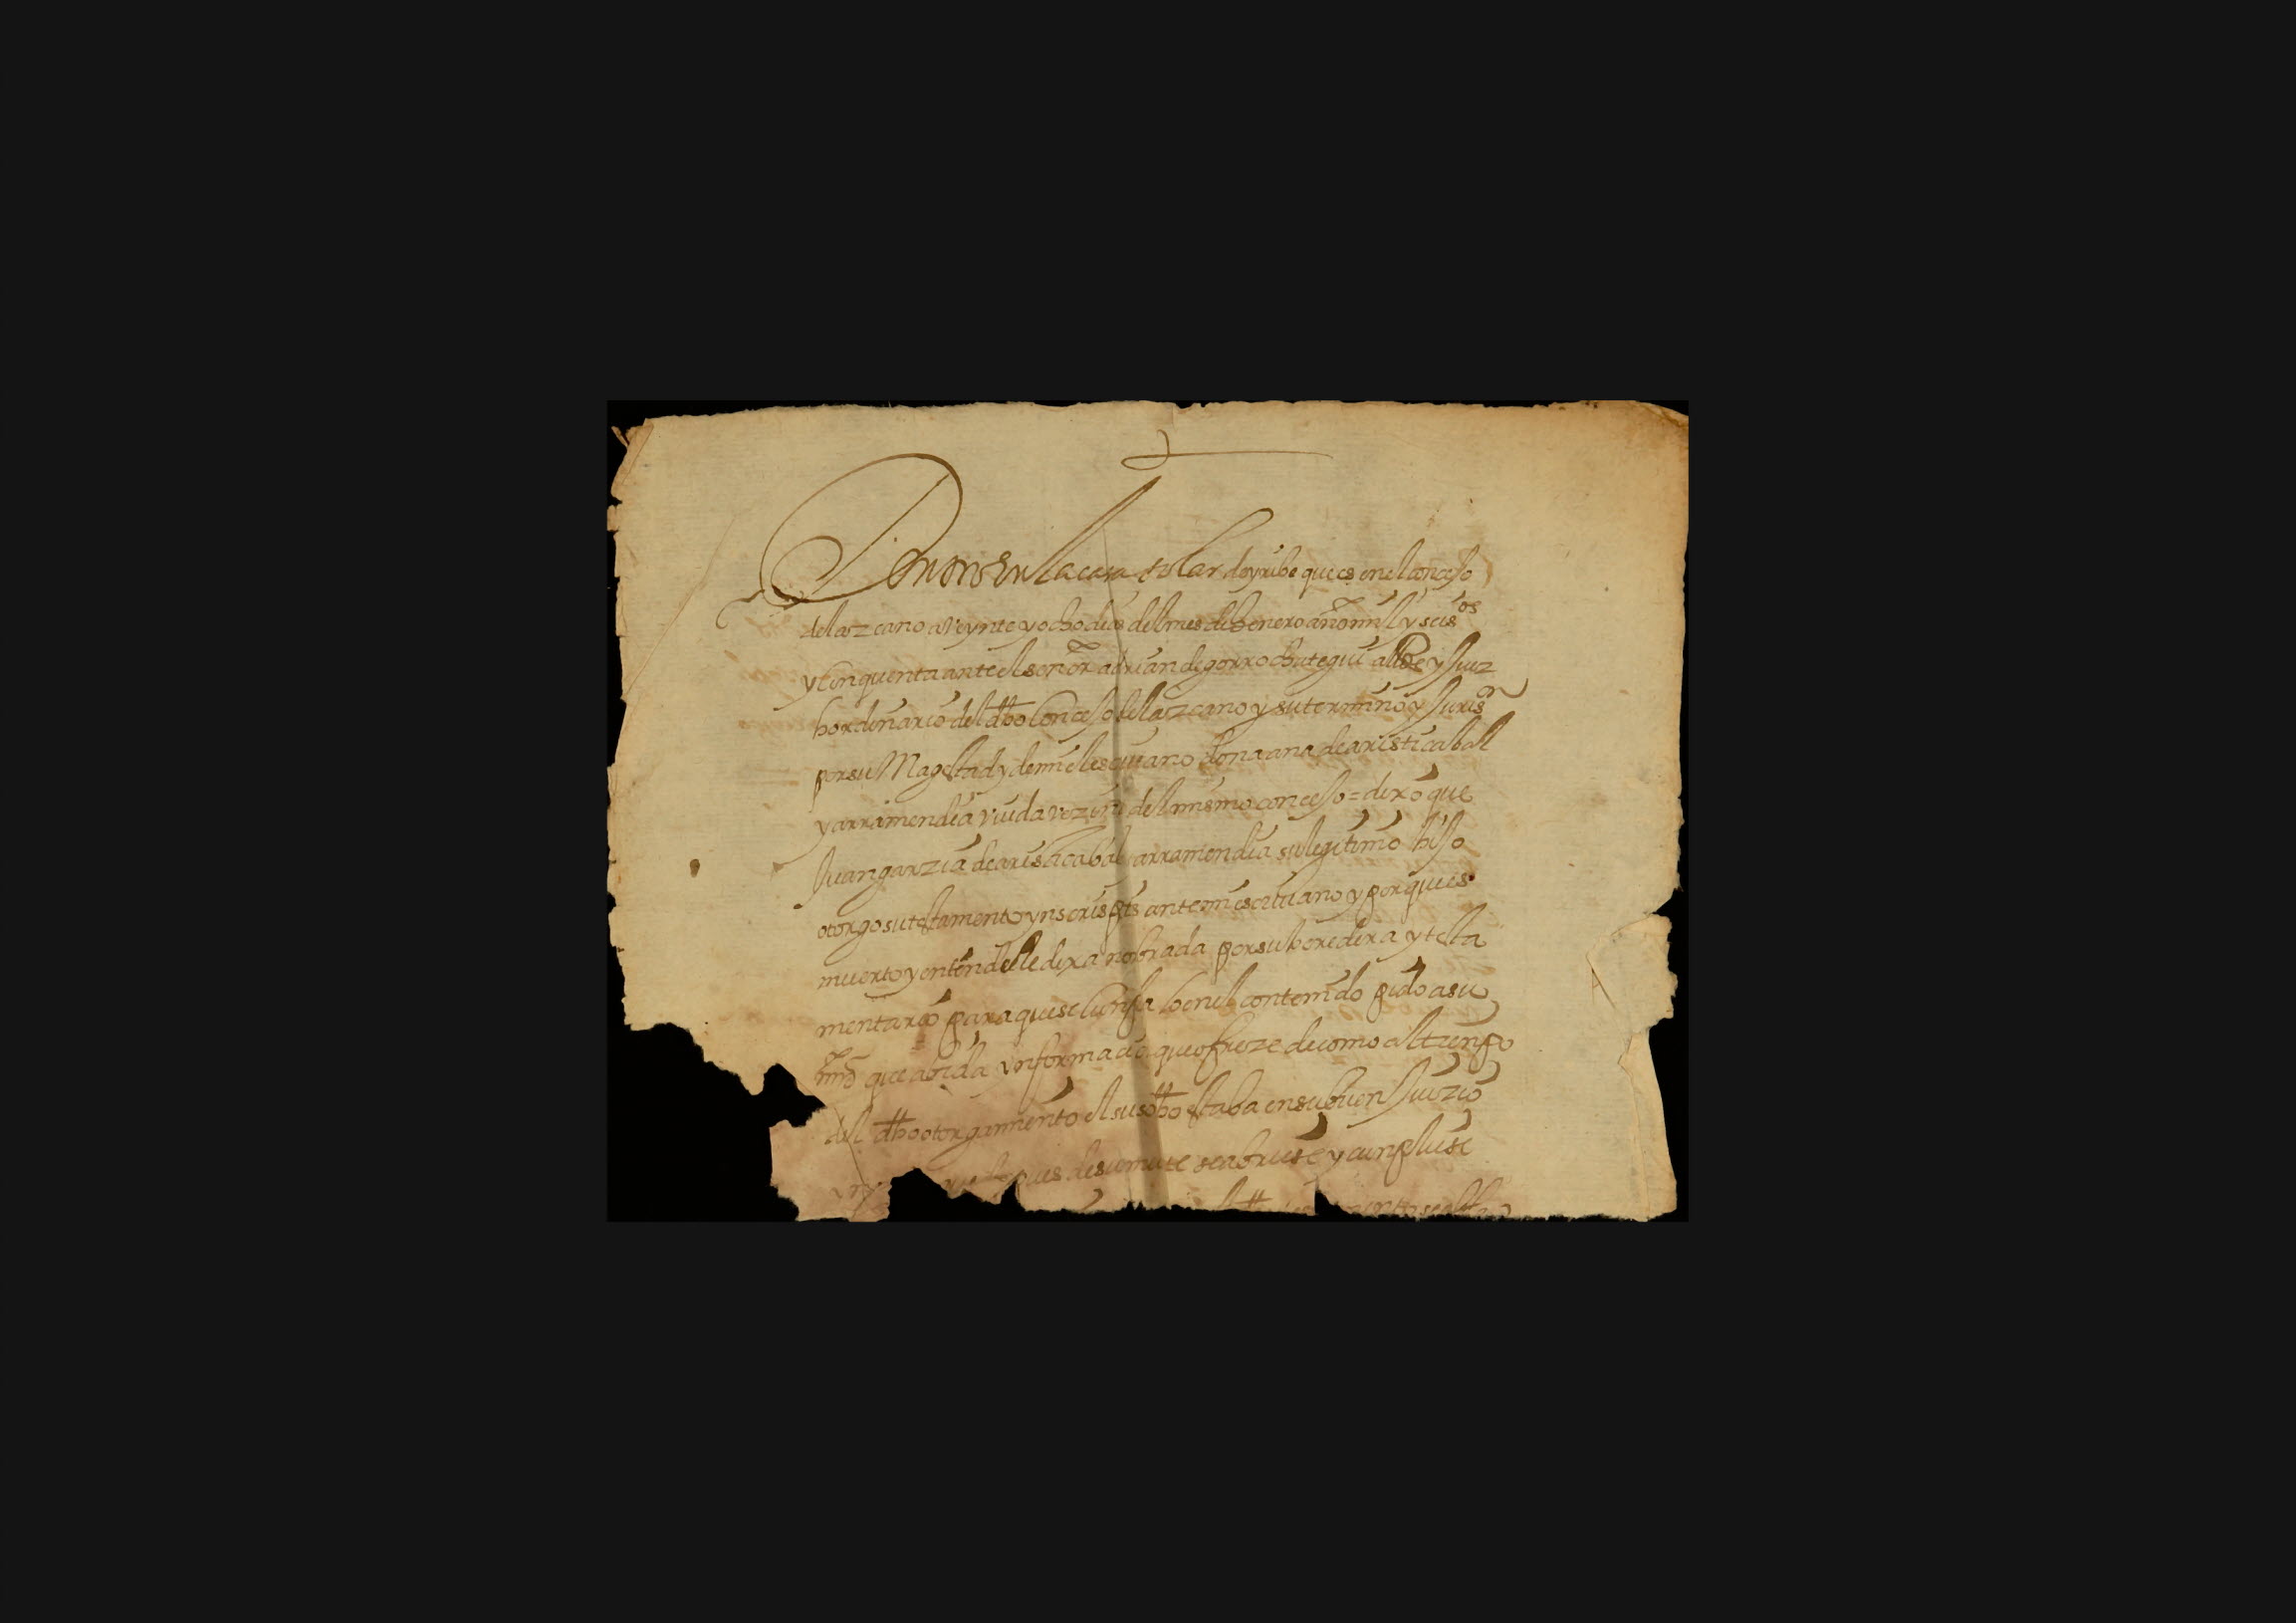 en la casa solar de yribe que es en el conçejo
de lazcano a veynte y ocho dias del mes de henero año mil y seis os
y cinquenta ante el señor adrian de gorrochategui allde y Juez
hordinario del dho conçejo de lazcano y su termino y Juris on
por su Magestad y de mi el escriuano dona ana de aristicabal
y arramendia viuda vezina del mismo conçejo = dixo que
Juan garzia de aristicabal arramendia su legitimo hijo
otorgo su testamento ynscriptis ante mi escriuano y porque es
muerto y entiende le dexa nobrada por su heredera y testa
mentario para que se cunpla lo en el contenido pidio a su
md que abida ynformacio que ofreze de como al tienpo
del dho otorgamiento el susodho estaba en su buen Juizio
pues de su muerte se abriese y cunpliese